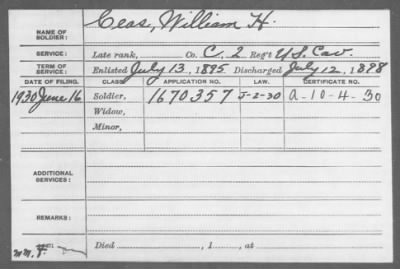 NAME OF SOLDIER: Ceas, William H.
SERVICE: Late rank, Co. C, 2 Reg't U.S. Cav.
TERM OF SERVICE: Enlisted July 13, 1895 Discharged July 12, 1898
DATE OF FILING. CLASS. APPLICATION NO. LAW. CERTIFICATE NO.
1930 June 16 Soldier, 1670357 J-2-30 a-10-4-30
Widow,
Minor,
ADDITIONAL SERVICES:
REMARKS:
Died , 1 , at